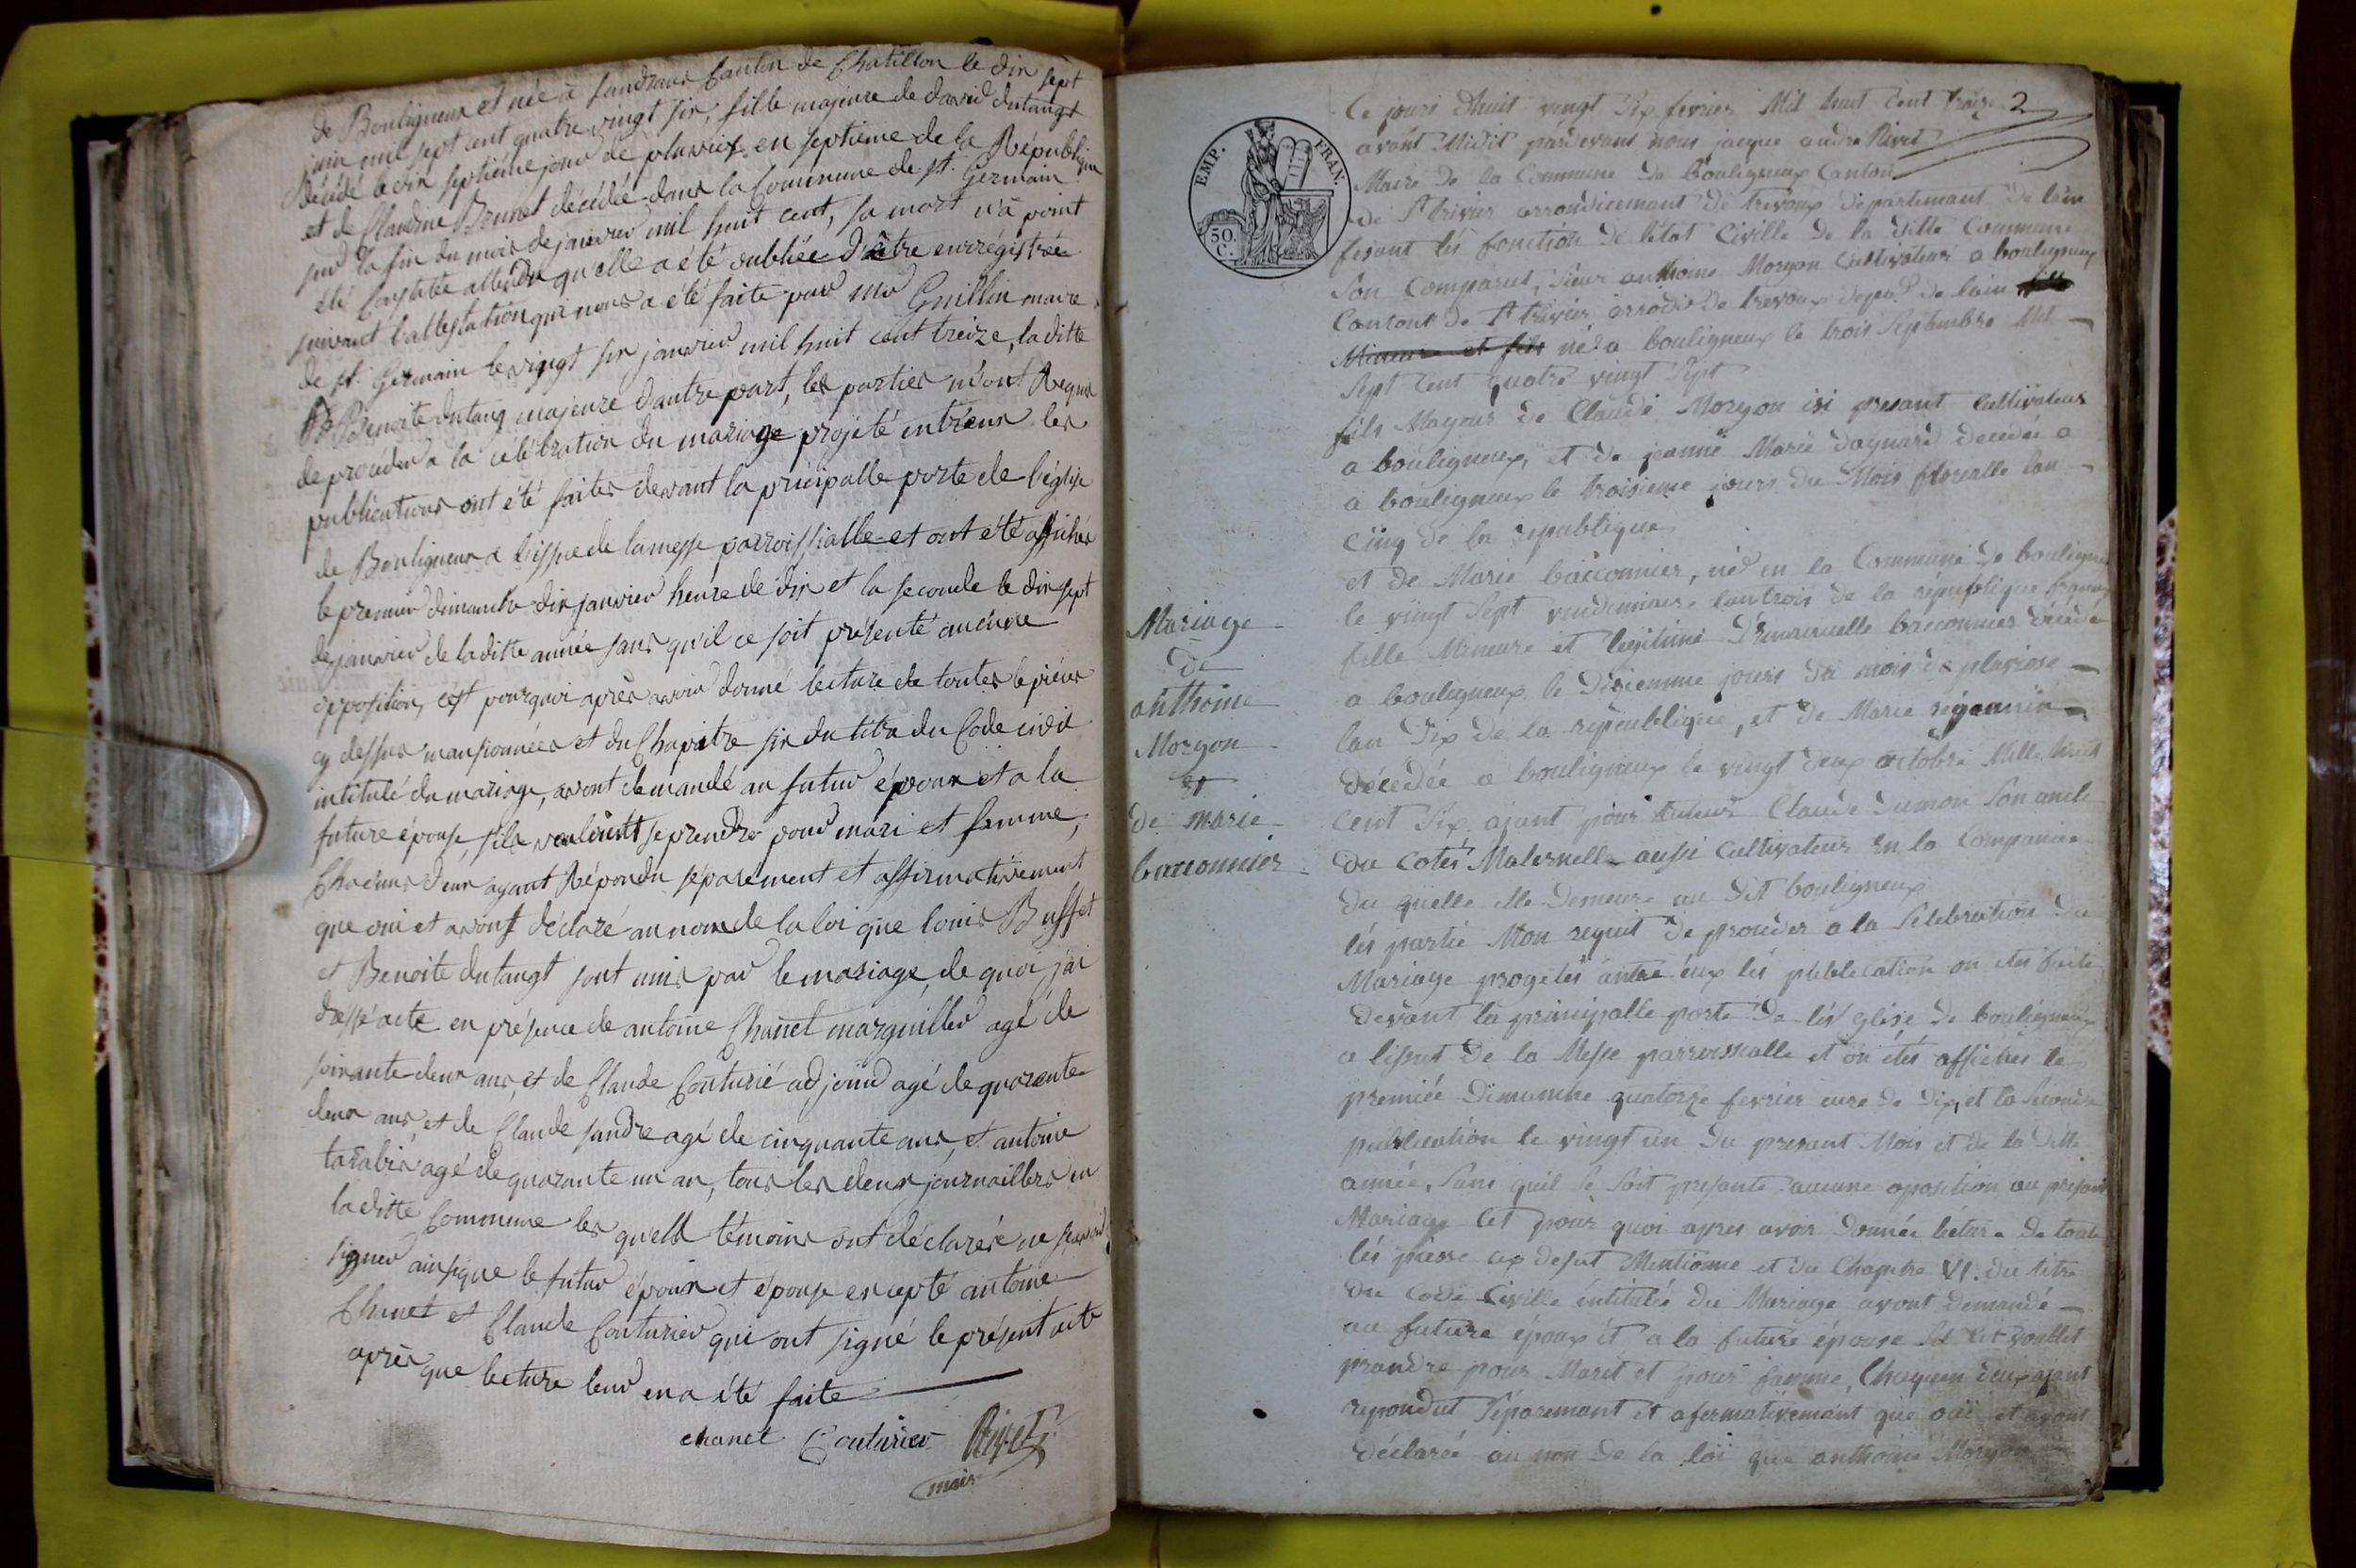 de Bouligneux et née à Sandrans Canton de Chatillon le dix sept
juin mil sept cent quatre vingt six, fille majeure de david dutangt
décédé le dix septieme jour de pluviose en septieme de la République
et de Claudine Brunet décédée dans la Commune de st. Germain
sur la fin du mois de janvier mil huit cent, sa mort n'a point
été Constatée attendu qu'elle a été oubliée d'être enrégistrée
suivant l'attestation qui nous a été faite par Mr Guillin maire
de st. Germain le vingt six janvier mil huit cent treize, la ditte
Benoite dutang majeure d'autre part, les parties m'ont Requis
de procéder a la célébration du mariage projeté entr'eux les
publications ont été faites devant la principalle porte de l'église
de Bouligneux a l'issue de la messe parroissialle et ont été affichés
le premier dimanche dix janvier heure de dix et la seconde le dix sept
de janvier de la ditte année sans qu'il ce soit présenté aucune
opposition, c'est pourquoi après avoir donné lecture de toutes le pièces
cy dessus mansionnées et du Chapitre six du titre du Code civil
intitulé du mariage, avont demandé au futur époux et a la
future épouse, s'ils veulent se prendre pour mari et famme,
Chacuns d'eux ayant Répondu séparément et affirmativement
que oui et avons déclaré au nom de la loi que louis Buffet
et Benoite dutangt sont unis par le mariage, de quoi j'ai
dressé acte en présence de antoine Chanel marguillier agé de
soixante deux ans, et de Claude Couturié adjoind agé de quarente
deux ans et de Claude sandre agé de cinquante ans, et antoine
agé de quarante un an, tous les deux journaillers en
la ditte Commune les quells témoins ont déclarés ne scavoir
signer ainsi que le futur époux et épouse excepté antoine
Chanel et Claude Couturier qui ont signé le présent acte
après que lecture leur en a été faite
chanel Couturier Rivet
maire
2
EMP. FRAN.
50. C.
Ce jours dhuit vingt Six fevrier Mil huit Cent treize
avant Midit pardevant nous jacque andre Rivet
Maire de la Commune de Bouligneux Canton
de St trivier arrondicemant de trevoux departemant de lain
fesant les fonction de létat Civille de la ditte Commune
Son Comparut, Sieur anthoine Morgon Cultivateur a bouligneux
Cantont de St trivier arrodis de trevoux depart de lain
Mineure et fils né a bouligneux le trois Septembre Mil
Sept Cent quatre vingt Sept
fils Mayeur de Claude Morgon isi presant Cultivateur
a bouligneux, et de jeanne Marie dagnard decédée a
a bouligneux le troisieme jours du Mois floréalle lan
Cinq de la republique
et de Marie bacconnier, née en la Commune de bouligneux
le vingt Sept vendemiaire lantrois de la république
fille Mineure et legitime bacconnier décédé
a bouligneux le jours du mois de pluviose
lan Six de la republique, et de Marie
décédée a bouligneux le vingt deux octobre Mille huit
Cent Six ajant pour tuteur Claude dumon Son oncle
du Cotés Maternelle aussi Cultivateur en la Companie
du quelle elle Demeure au dit bouligneux
lés partie Mon requit de proceder a la Selebration du
Mariage progetés antre eux lés publication on étés faite
devant la principalle porte de lés'glise de bouligneux
a lissut de la Messe parroissialle et on étés affiches le
premiée dimanche quatorze fevrier eure de dix, et la Seconde
publication le vingt un du presant Mois et de la ditte
année, Sans quil Se Soit presante aucune oposition au presant
Mariage Cet pour quoi apres avoir donnée léture de toute
lés piesse ax desut Mentionne et du Chapitre VI. du titre
du Code Civille intitulée du Mariage avont demandé
au future époux et a la future épouse voullet
prandre pour Maret et pour famme, Chaquun deux ajant
repondut Séparemant et afermativemant que oui et avont
déclarée au non de la loi que anthoine Morgon
Mariage
de
anthoine
Morgon
et
de marie
bacconnier